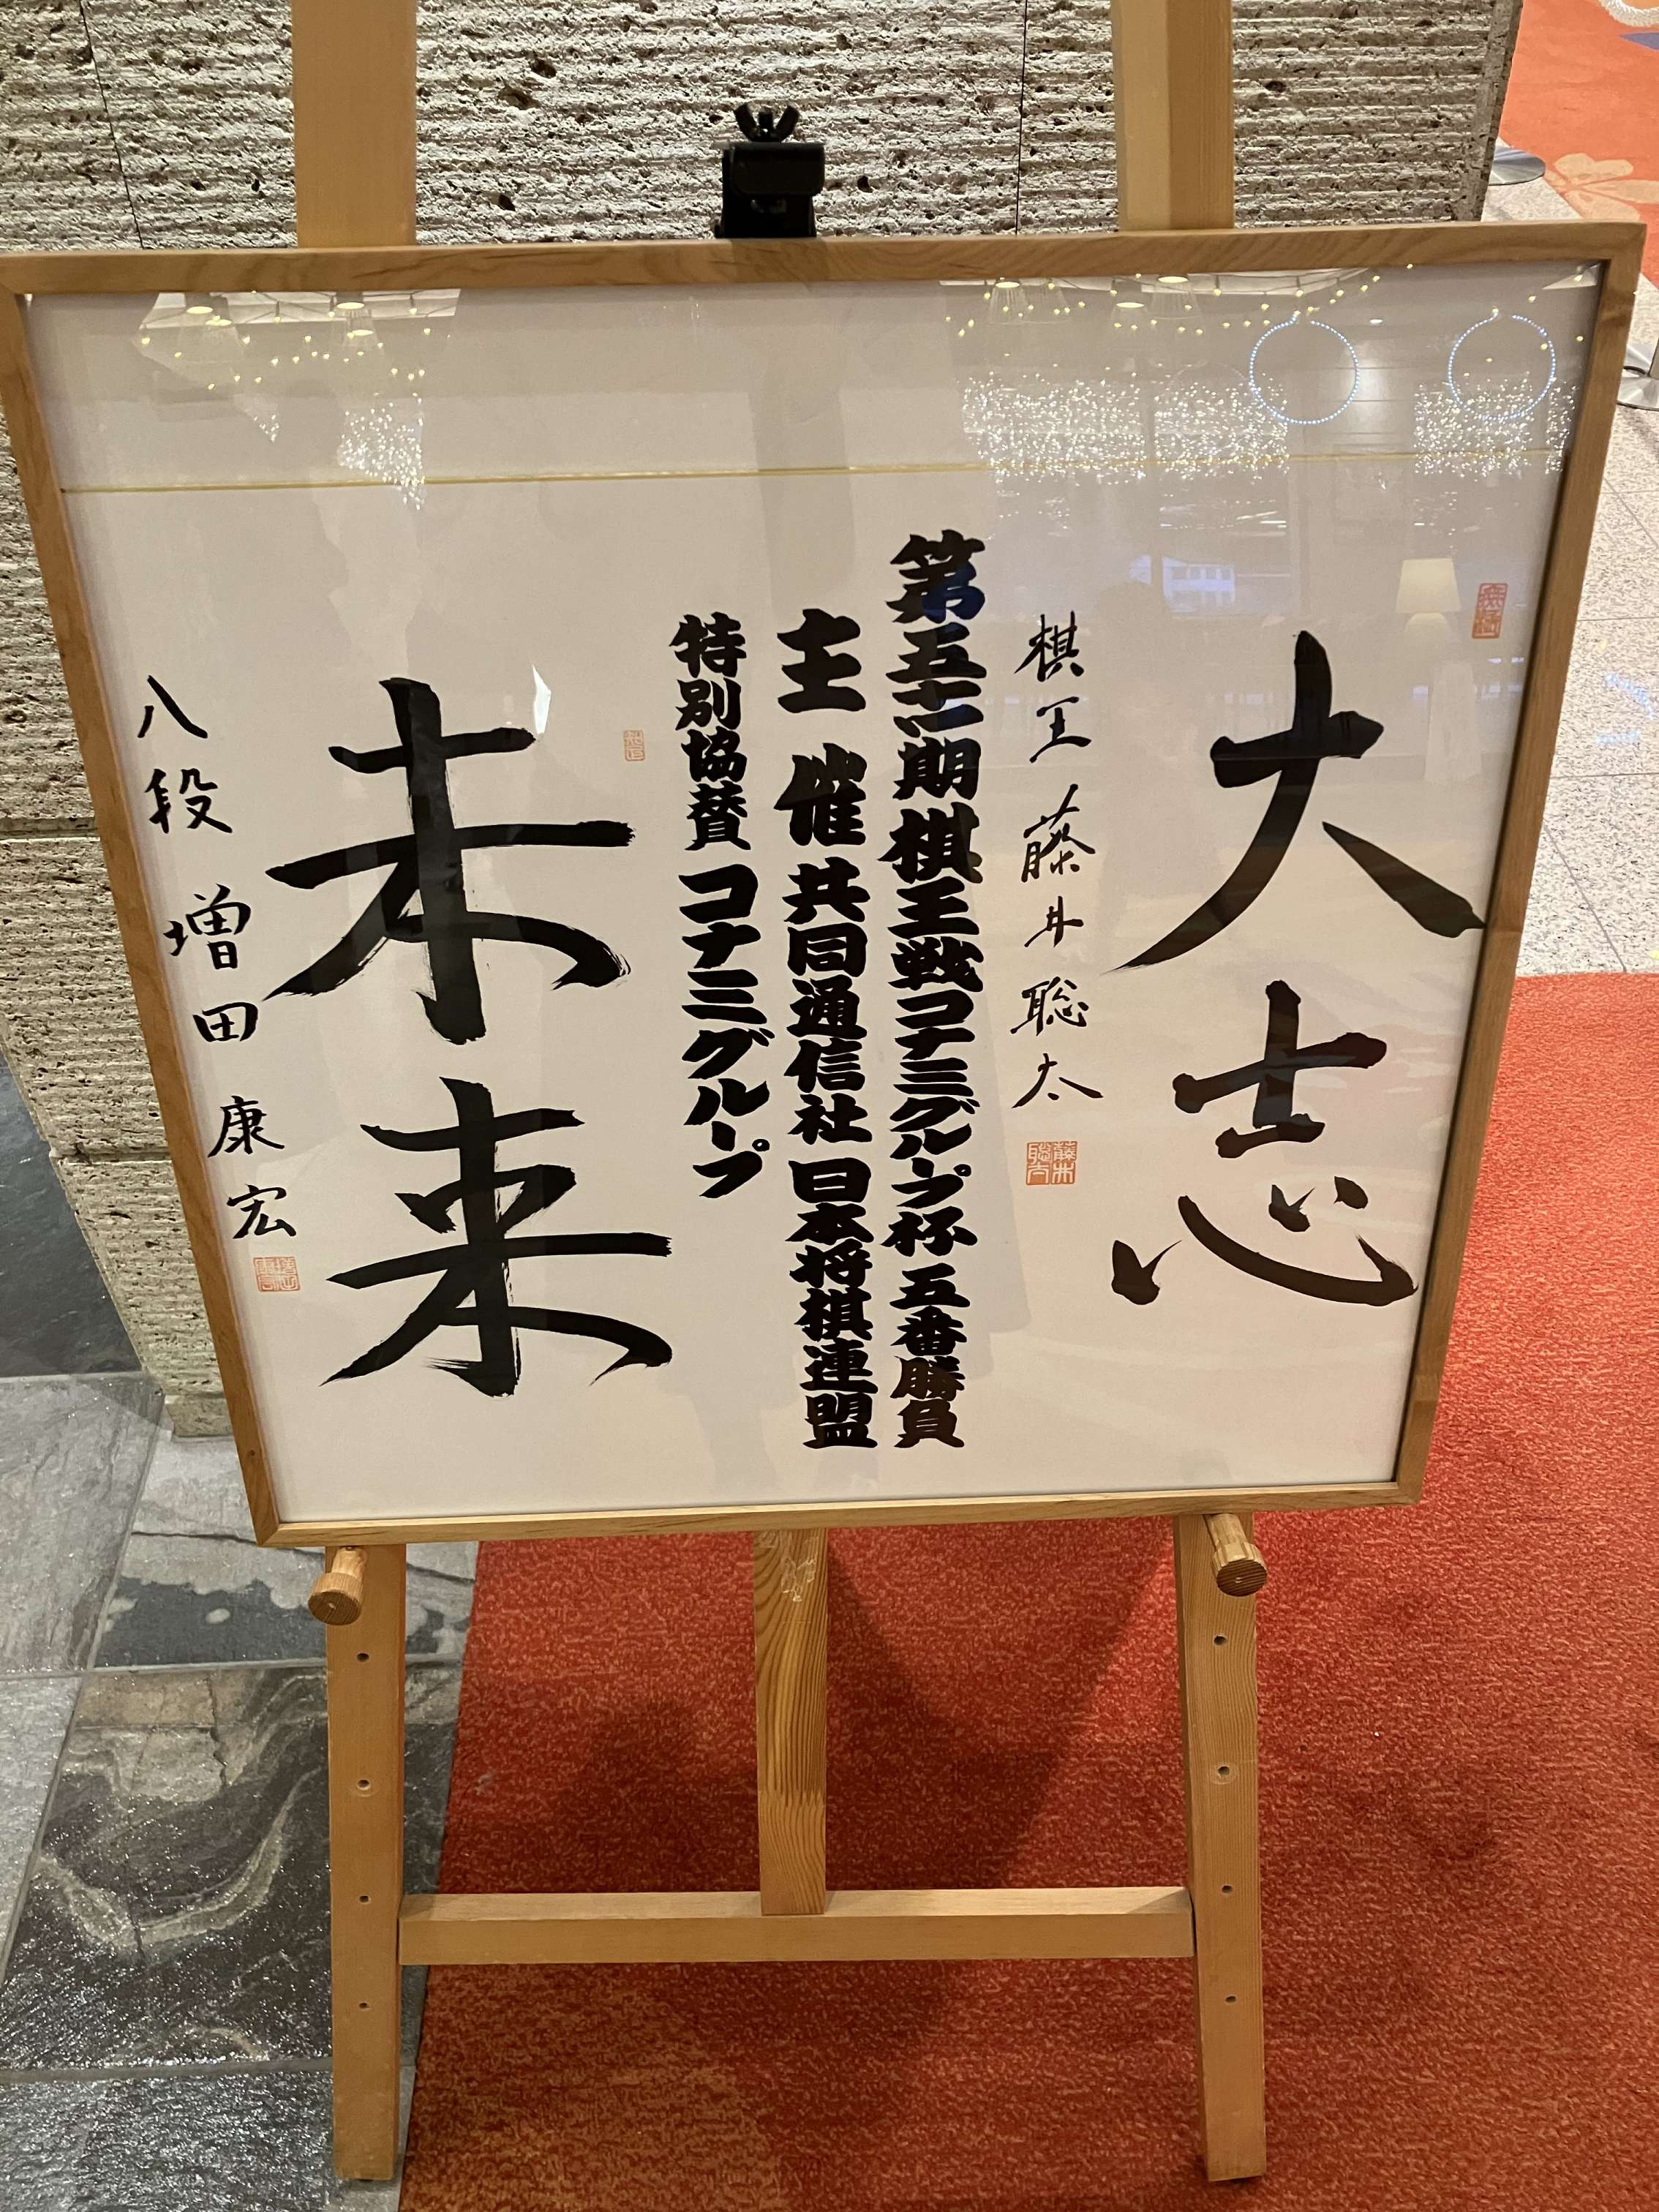 大志
棋王 藤井聡太
藤井聡太
第五十一期棋王戦コナミグループ杯 五番勝負
主催 共同通信社 日本将棋連盟
特別協賛 コナミグループ
未来
八段 増田康宏